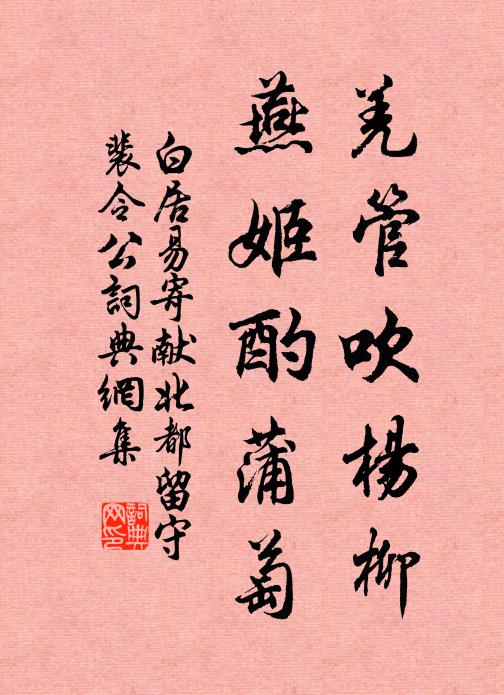 羌管吹楊柳
燕姬酌蒲萄
白居易寄献北都留守
裴令公詞典網集
詞典
网印